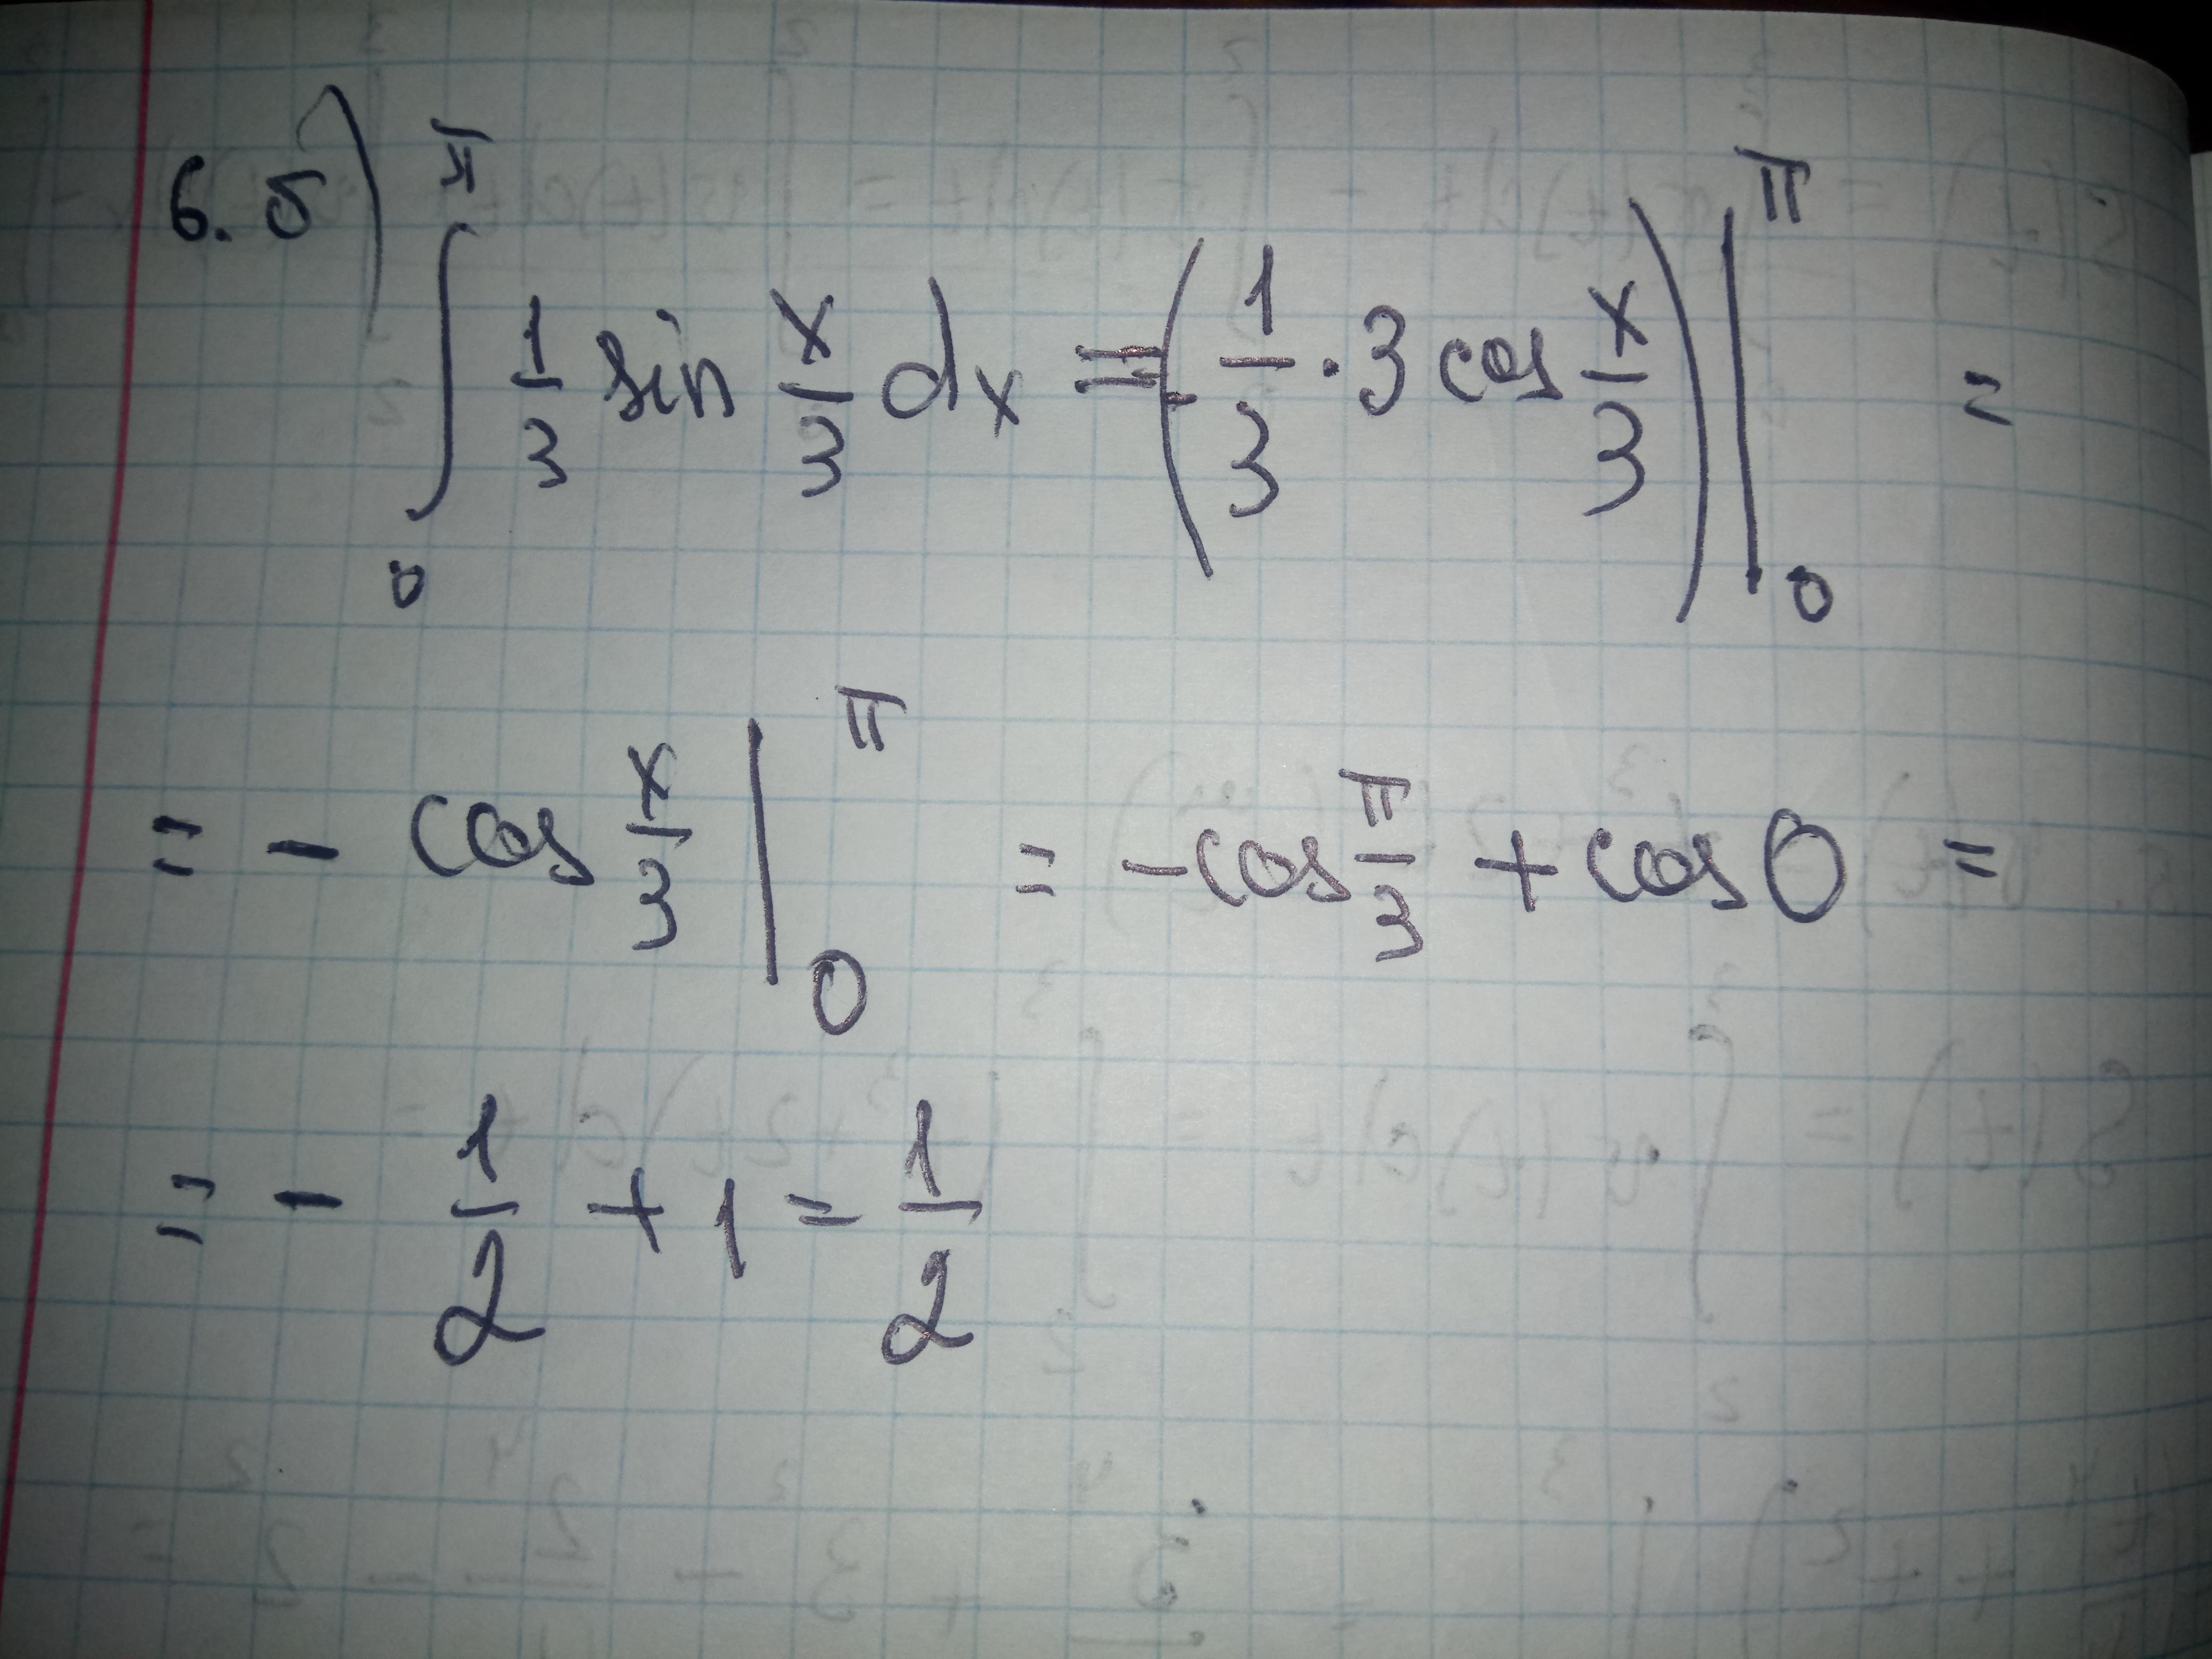 6. б) ∫₀^π 1/3 sin x/3 dx = (-1/3 · 3 cos x/3) |₀^π =
= - cos x/3 |₀^π = -cos π/3 + cos 0 =
= - 1/2 + 1 = 1/2